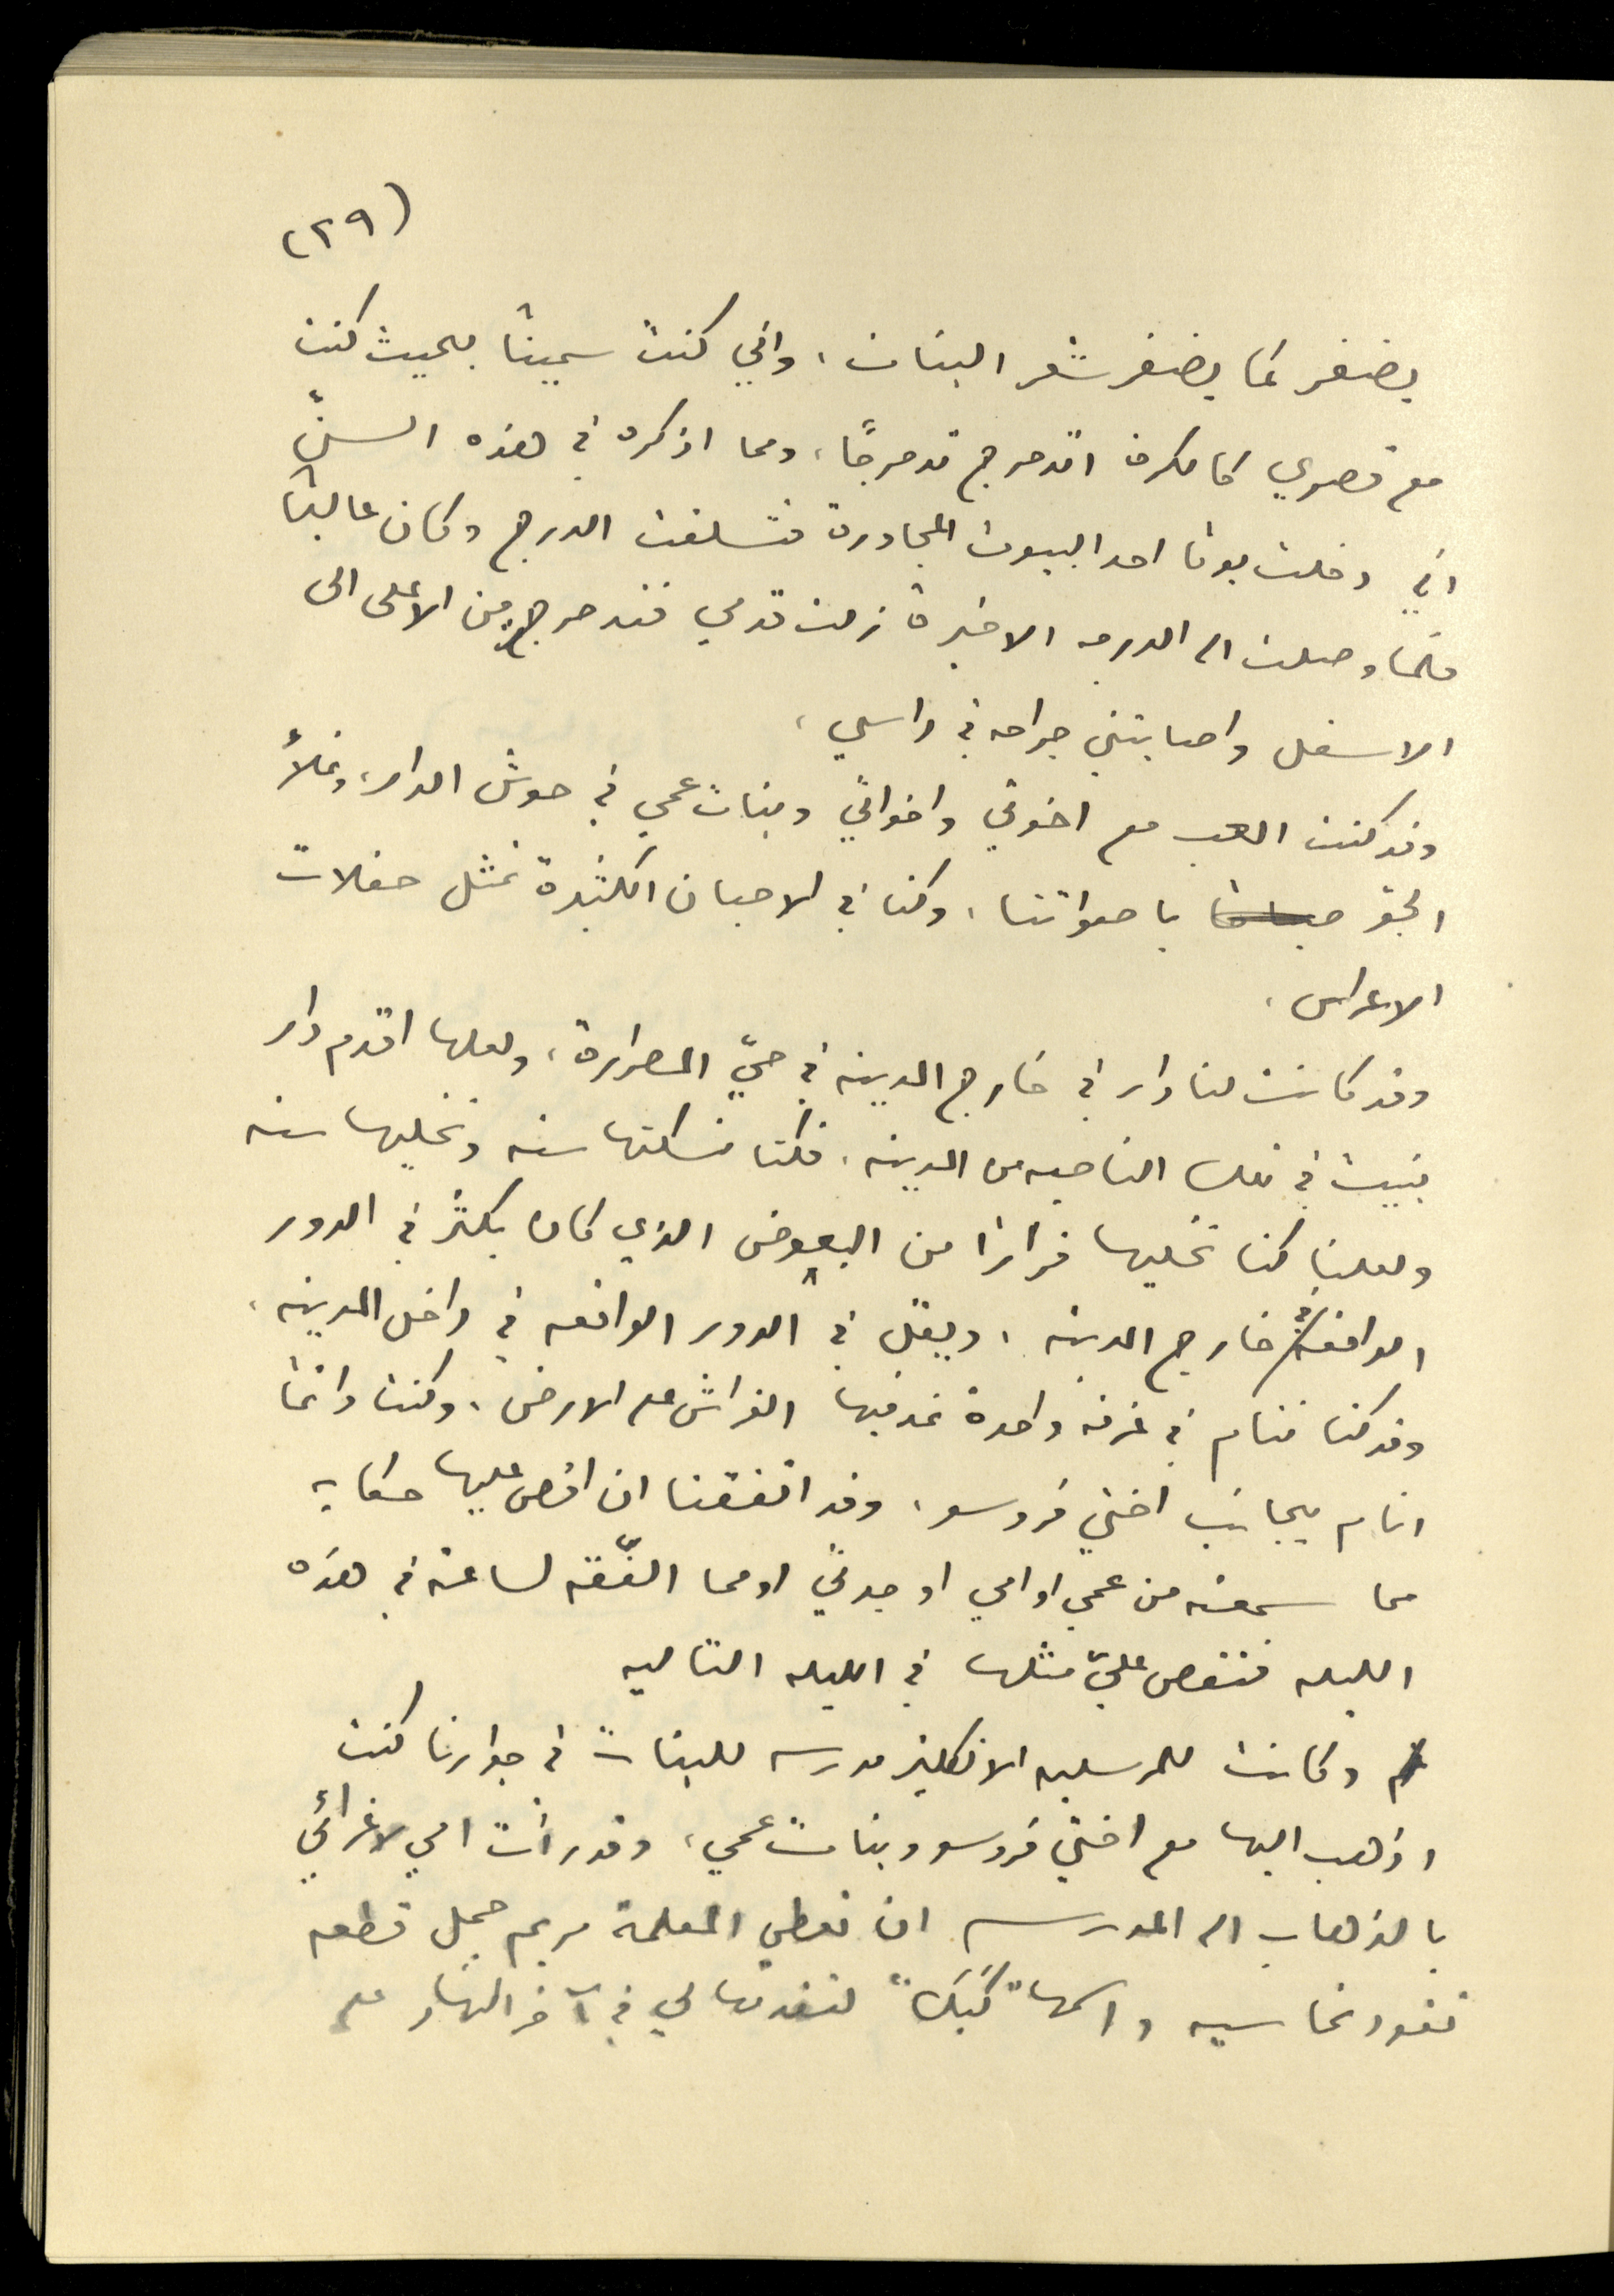 (٢٩)
يضفر كما يضفر شعر البنات، واني كنت سميناً بحيث كنت
مع قصري كالكرة اتدحرج تدحرجاً، ومما اذكره في هذه السنّ
اني دخلت يوما احد البيوت المجاورة فتسلقت الدرج وكان عاليا
فلما وصلت الى الدرجه الاخيرة زلت قدمي فتدحرجت من الاعلى الى
الاسفل واصابتني جراحه في راسي.
وقد كنت العب مع اخوتي واخواتي وبنات عمي في حوش الدار، ونملأ
الجو باصواتنا، وكنا في الاحيان الكثيرة نمثل حفلات
الاعراس.
وقد كانت لنا دار في خارج المدينه في حيّ المصرارة، ولعلها اقدم دار
بنيت في تلك الناحيه من المدينه. فكنا نسكنها سنه ونخليها سنه
ولعلنا كنا نخليها فراراً من البعوض الذي كان يكثر في الدور
الواقعه في خارج المدينه، ويقل في الدور الواقعه في داخل المدينه.
وقد كنا ننام في غرفه واحدة نمد فيها الفراش على الارض، وكنت دائما
انام بجانب اختي فروسو، وقد اتفقنا ان اقص عليها حكايه
مما سمعته من عمي او امي او جدتي او مما الفّقه لساعته في هذه
الليله فتقص عليّ مثلها في الليله التاليه
وكانت للمرسليه الانكليز مدرسه للبنات في جوارنا كنت
اذهب اليها مع اختي فروسو وبنات عمي، وقد رأت امي لاغرائي
بالذهاب الى المدرسه ان تعطي المعلمة مريم جمل قطعه
نقود نحاسيه واسمها "كَبَك" لتقدمها لي في آخر النهار على